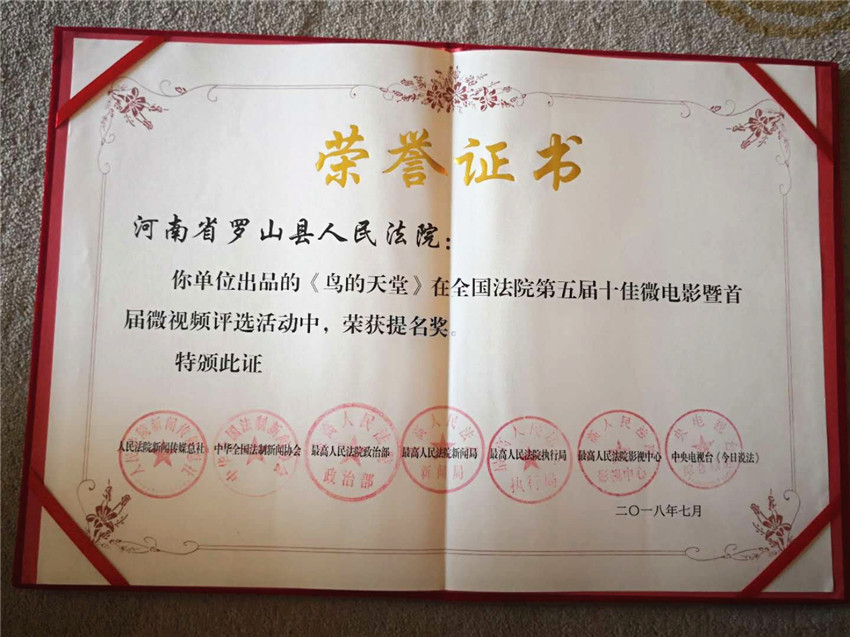 荣誉证书
河南省罗山县人民法院：
你单位出品的《鸟的天堂》在全国法院第五届十佳微电影暨首
届微视频评选活动中，荣获提名奖。
特颁此证
人民法院新闻传媒总社 中华全国法制新闻协会 最高人民法院政治部 最高人民法院新闻局 最高人民法院执行局 最高人民法院影视中心 中央电视台《今日说法》
政治部 新闻局 执行局 影视中心
二〇一八年七月